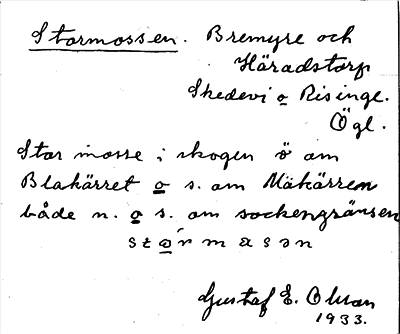 Stormossen. Bremyre och
Häradstorp
Skedevi o Risinge.
Ögl.
Stor mosse i skogen ö om
Blakärret o s. om Mäkärren
både n. o s. om sockengränsen
Gustaf E. Olsson
1933.